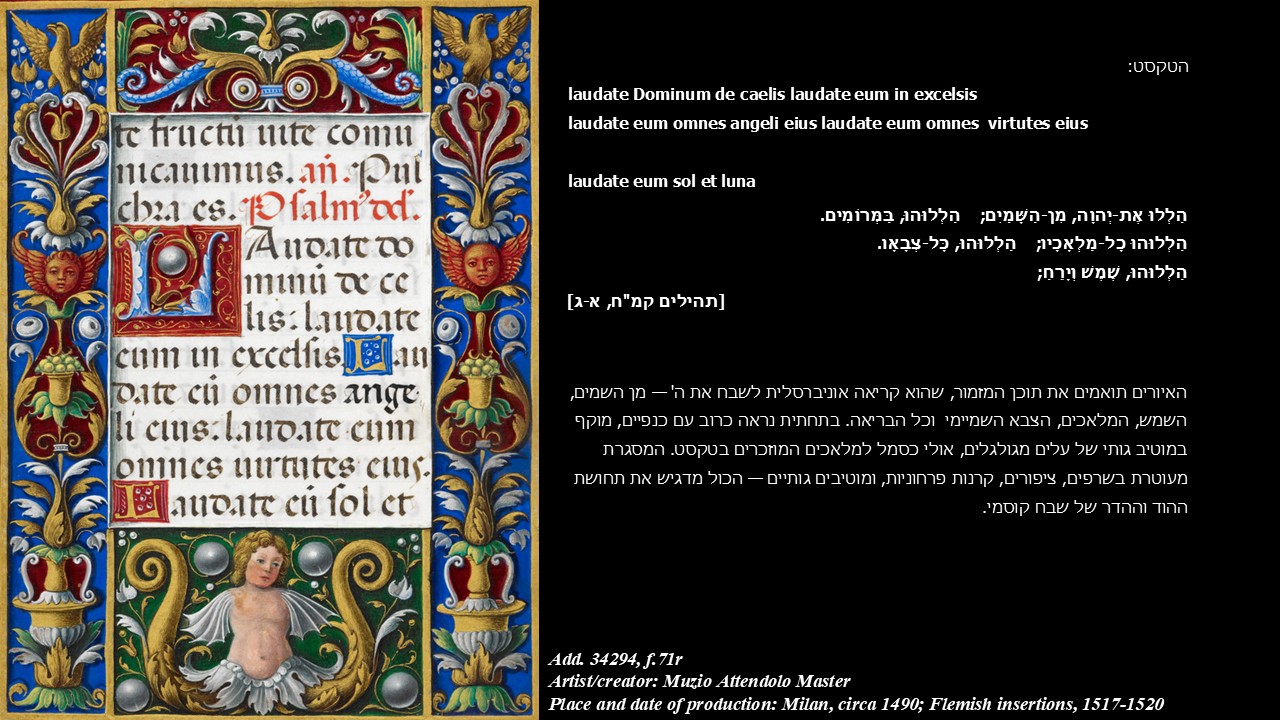 te fructū uite comu
nicauimus. añ. Pul
chra es. Psalm⁹ dd'.
LAudate do
minū de ce
lis: laudate
eum in excelsis. Lau
date eū omnes ange
li eius. laudate eum
omnes uirtutes eius.
Laudate eū sol et
הטקסט:
laudate Dominum de caelis laudate eum in excelsis
laudate eum omnes angeli eius laudate eum omnes virtutes eius
laudate eum sol et luna
הַלְלוּ אֶת-יְהוָה, מִן-הַשָּׁמַיִם; הַלְלוּהוּ, בַּמְּרוֹמִים.
הַלְלוּהוּ כָל-מַלְאָכָיו; הַלְלוּהוּ, כָּל-צְבָאָו.
הַלְלוּהוּ, שֶׁמֶשׁ וְיָרֵחַ;
[תהילים קמ"ח, א-ג]
האיורים תואמים את תוכן המזמור, שהוא קריאה אוניברסלית לשבח את ה' — מן השמים,
השמש, המלאכים, הצבא השמיימי וכל הבריאה. בתחתית נראה כרוב עם כנפיים, מוקף
במוטיב גותי של עלים מגולגלים, אולי כסמל למלאכים המוזכרים בטקסט. המסגרת
מעוטרת בשרפים, ציפורים, קרנות פרחוניות, ומוטיבים גותיים — הכול מדגיש את תחושת
ההוד וההדר של שבח קוסמי.
Add. 34294, f.71r
Artist/creator: Muzio Attendolo Master
Place and date of production: Milan, circa 1490; Flemish insertions, 1517-1520